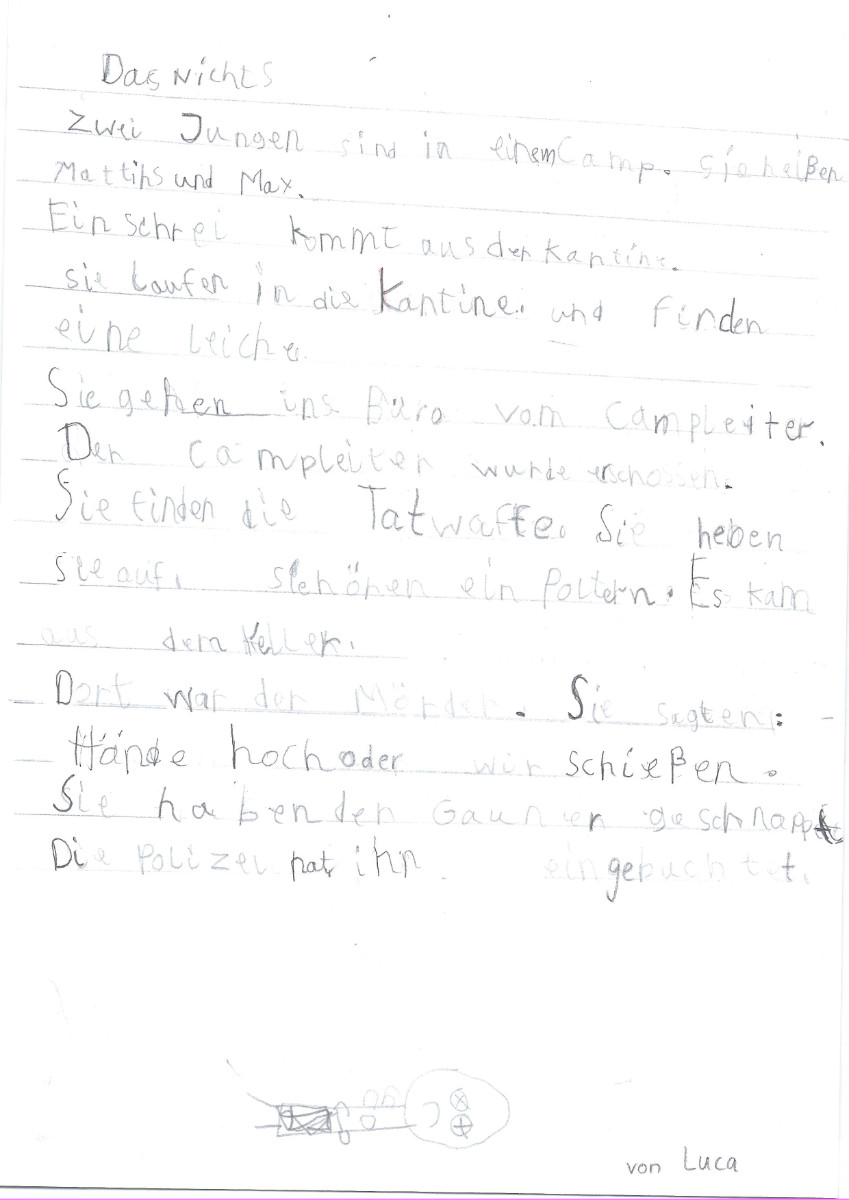 Das Nichts
Zwei Jungen sind in einem Camp. sie heißen
Mattihs und Max.
Ein schrei kommt aus der Kantine.
sie laufen in die Kantine. und finden
eine leiche.
Sie gehen ins Büro vom Campleiter.
Der Campleiter wurde erschossen.
Sie finden die Tatwaffe. Sie heben
sie auf. sie hören ein Poltern. Es kam
aus dem Keller.
Dort war der Mörder. Sie sagten:
Hände hoch oder wir schießen.
Sie haben den Gauner geschnappt
Die Polizei hat ihn eingebuchtet.
von Luca